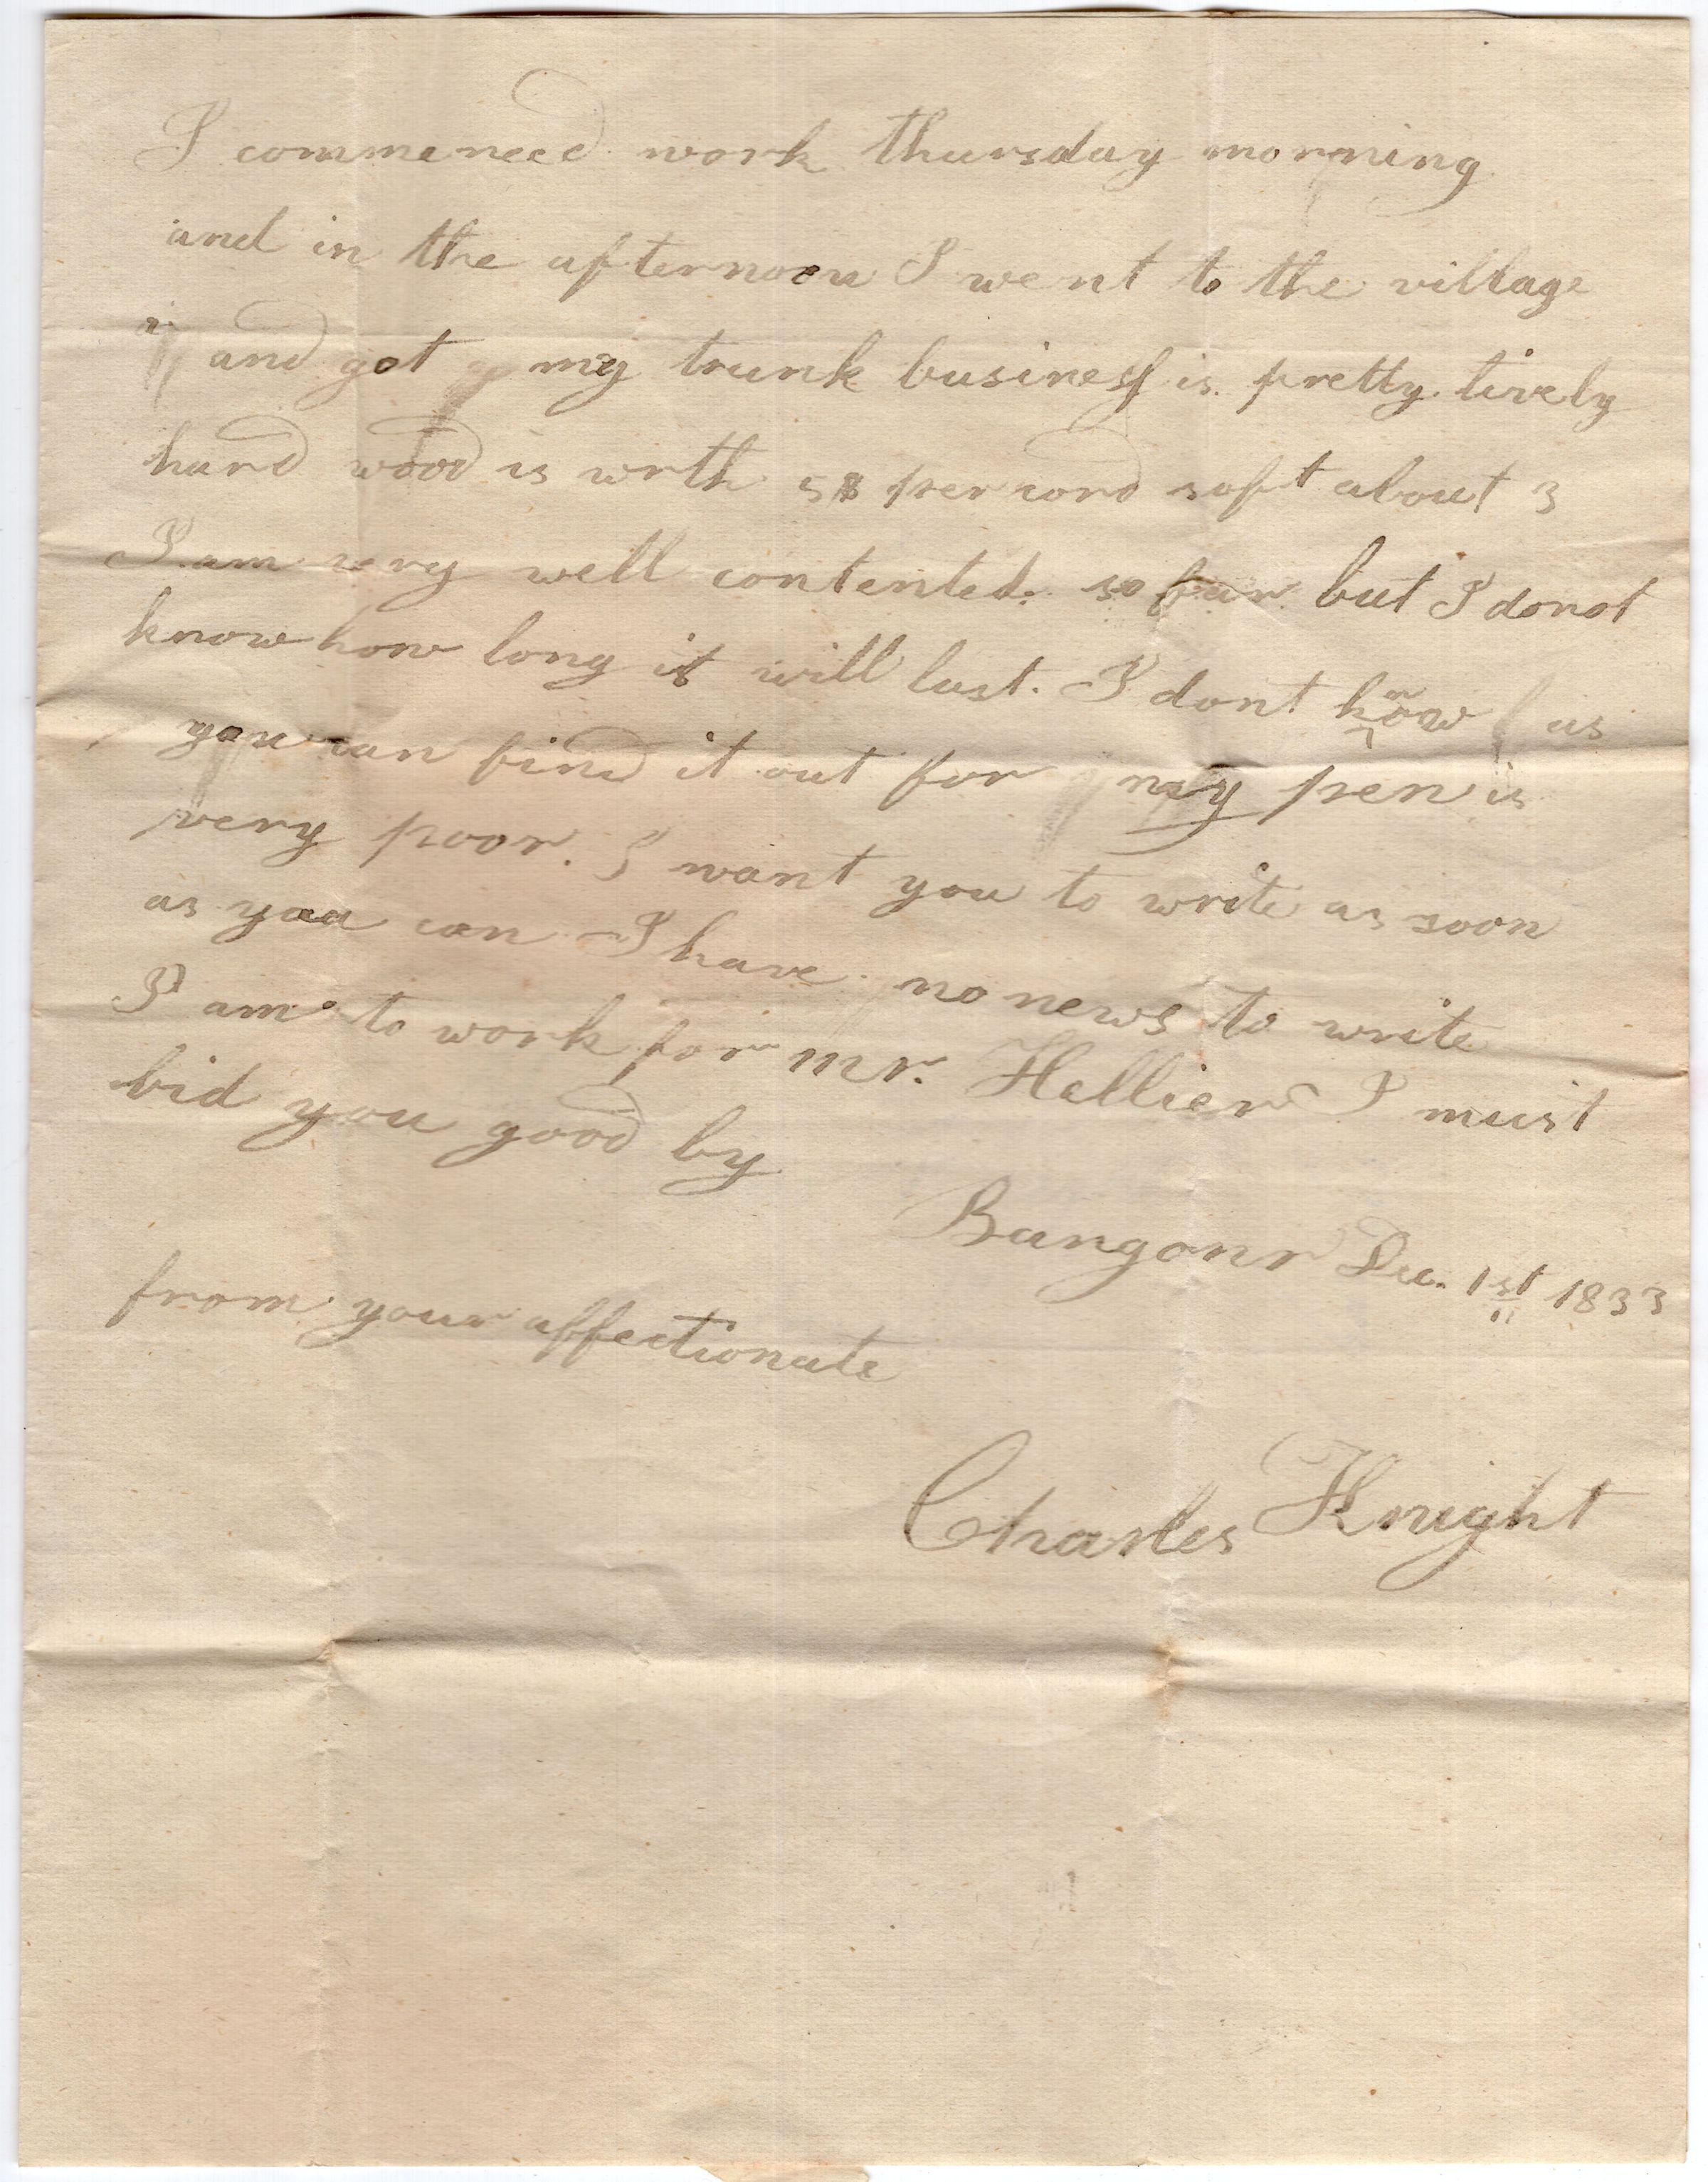 I commenced work thursday morning
and in the afternoon I went to the village
and got my trunk business is pretty lively
hard wood is wrth 5$ per cord soft about 3
I am very well contented. so far but I do not
know how long it will last. I dont know as
you can find it out for my pen is
very poor. I want you to write as soon
as you can I have no news to write
I am to work for mr. Hellier I must
bid you good by
Bangour Dec. 1st 1833
from your affectionate
Charles Knight